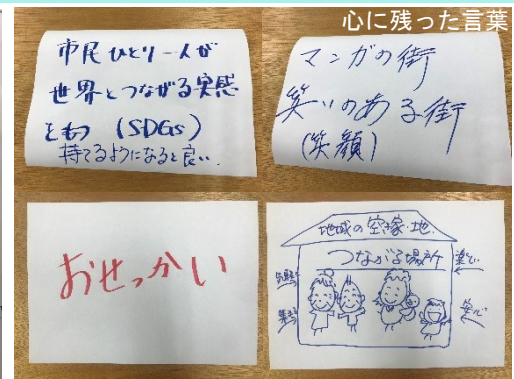 心に残った言葉
市民ひとり一人が
世界とつながる実感
をもつ (SDGs)
持てるようになると良い.
マンガの街
笑いのある街
(笑顔)
おせっかい
地域の空家・地
つながる場所
気軽に
集まる
楽しく
安心